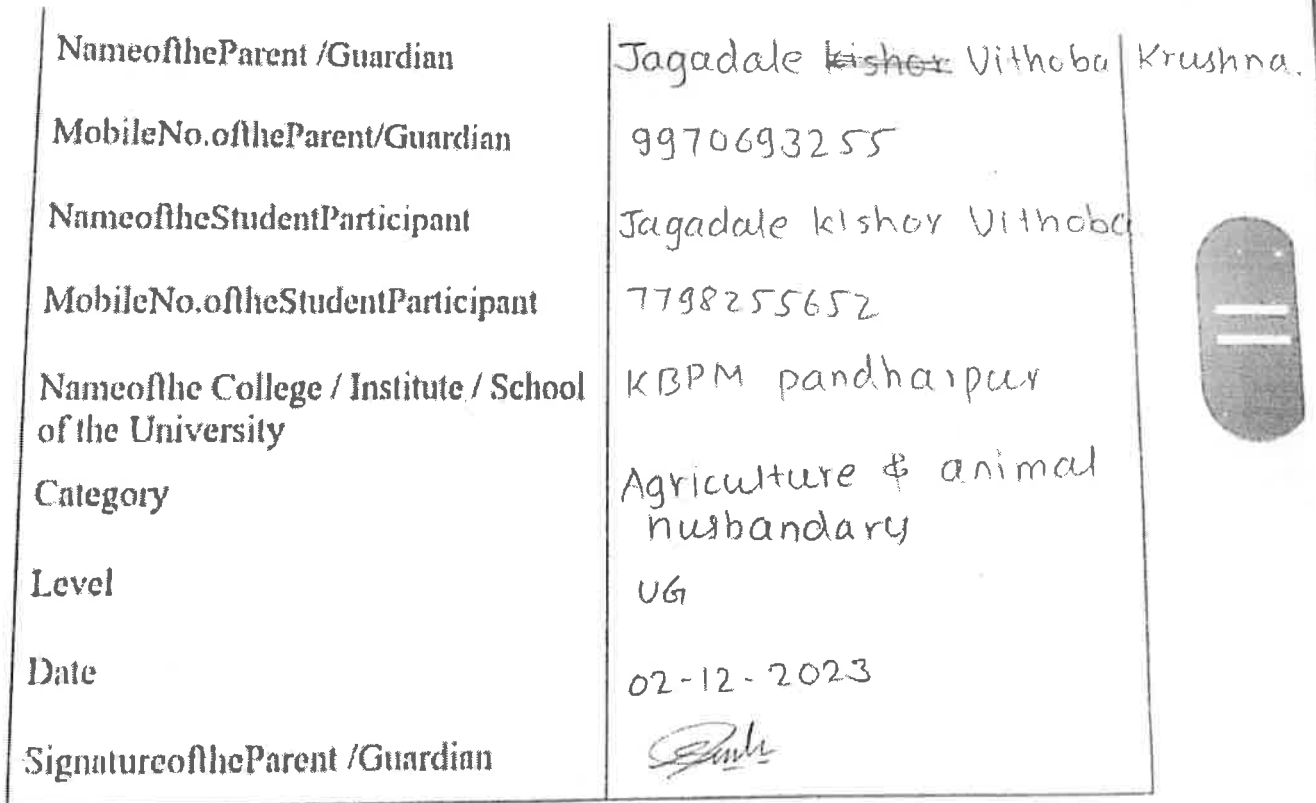 NameoftheParent /Guardian Jagadale kishor Vithoba Krushna.
MobileNo.oftheParent/Guardian 9970693255
NameoftheStudentParticipant Jagadale kishor Vithoba
MobileNo.oftheStudentParticipant 7798255652
Nameofthe College / Institute / School KBPM pandharpur
of the University
Category Agriculture & animal
husbandary
Level UG
Date 02-12-2023
SignatureoftheParent /Guardian